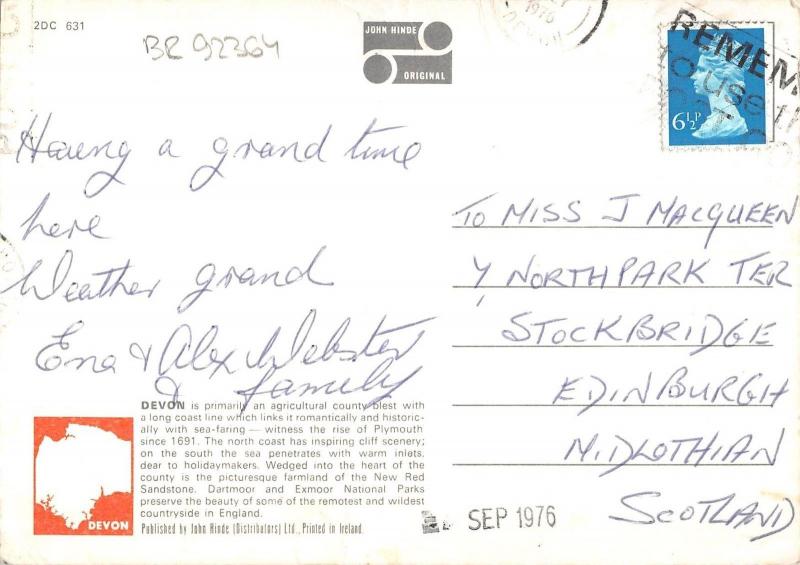 2DC 631
BR 92364
JOHN HINDE
ORIGINAL
1976
DEVON
REMEM
to use
6½P
Having a grand time
here
Weather grand
Ena & Alex Webster
& family
To MISS J MACQUEEN
NORTHPARK TER
STOCKBRIDGE
EDINBURGH
MIDLOTHIAN
SCOTLAND
DEVON is primarily an agricultural county blest with
a long coast line which links it romantically and historic-
ally with sea-faring — witness the rise of Plymouth
since 1691. The north coast has inspiring cliff scenery;
on the south the sea penetrates with warm inlets,
dear to holidaymakers. Wedged into the heart of the
county is the picturesque farmland of the New Red
Sandstone. Dartmoor and Exmoor National Parks
preserve the beauty of some of the remotest and wildest
countryside in England.
Published by John Hinde (Distributors) Ltd., Printed in Ireland.
DEVON
SEP 1976